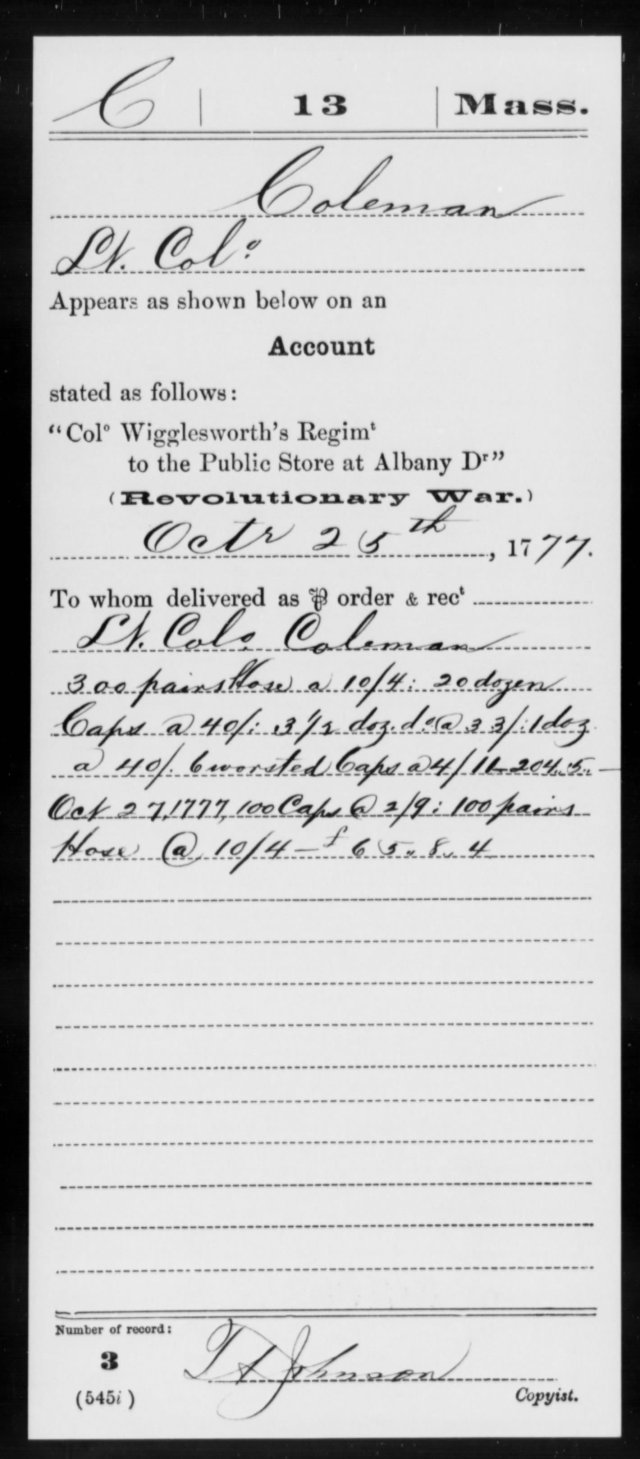 C | 13 | Mass.
Coleman
Lt. Col.º
Appears as shown below on an
Account
stated as follows:
"Colº Wigglesworth's Regimᵗ
to the Public Store at Albany Dʳ"
(Revolutionary War.)
Octr 25th, 1777.
To whom delivered as ⅌ order & recᵗ
Lt. Colo. Coleman
300 pairs Hose a 10/4: 20 dozen
Caps a 40/: 3½ doz. dº @ 33/: 1 doz
a 40/. 6 worsted Caps a 4/ 204.5.—
Oct 27, 1777, 100 Caps @ 2/9: 100 pairs
Hose @ 10/4 — £65.8.4
Number of record:
3
(545i)
Johnson
Copyist.